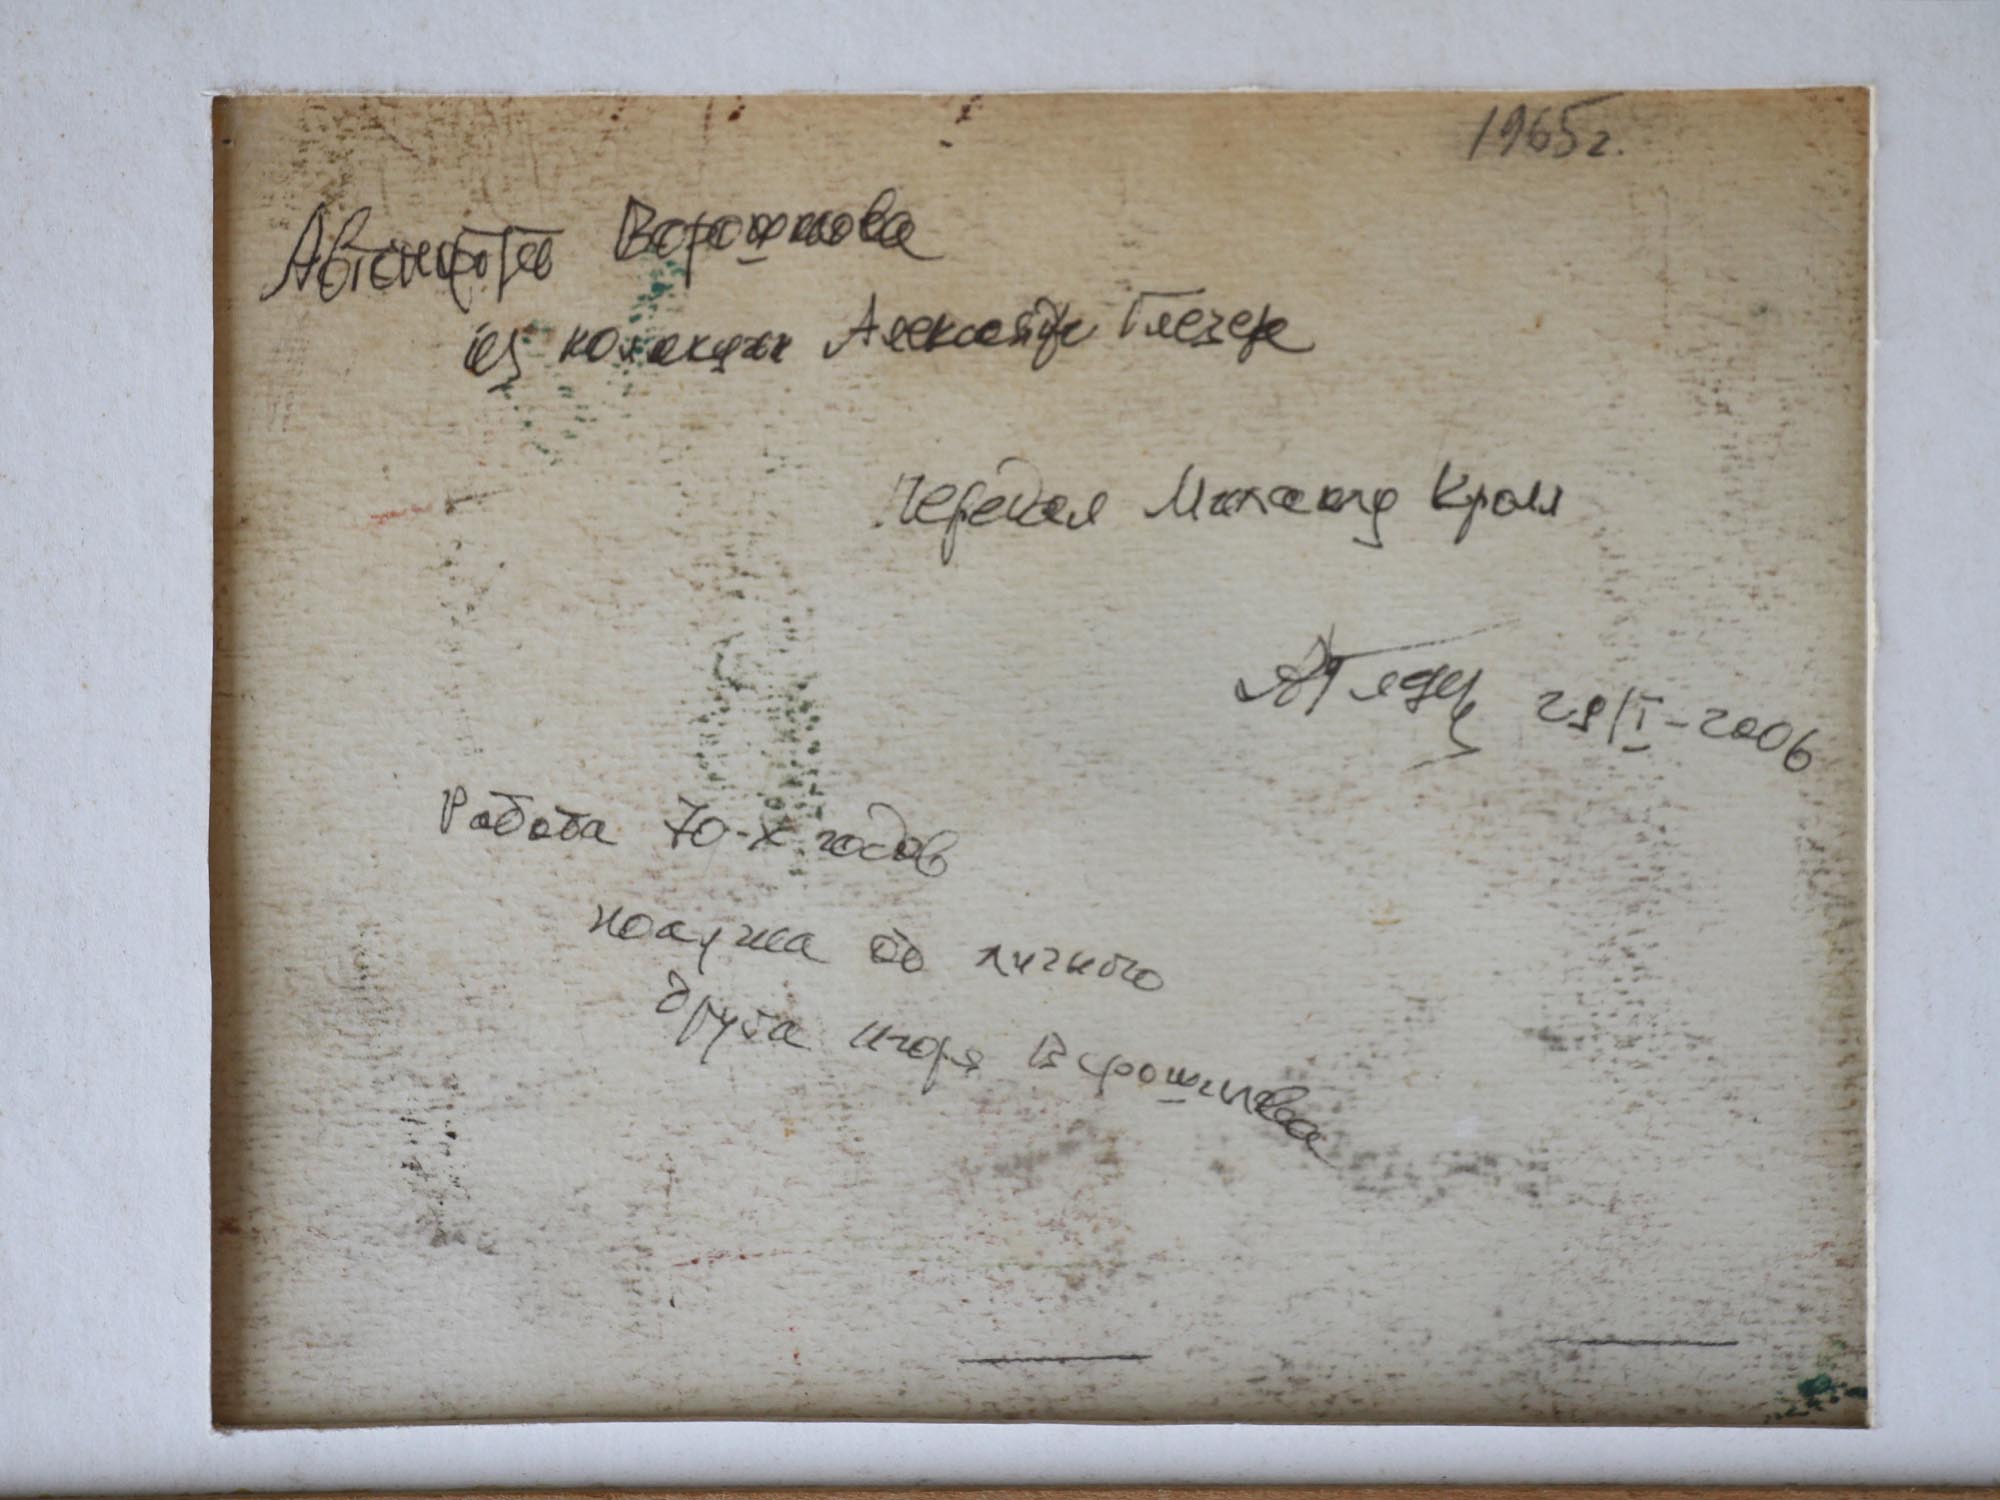 1965 г.
Ворошилова
из коллекции Александра Глезера
передал Михаилу Кроли
АГлезер 28/I-2006
Работа 70-х годов
получена от личного
друга Игоря Ворошилова